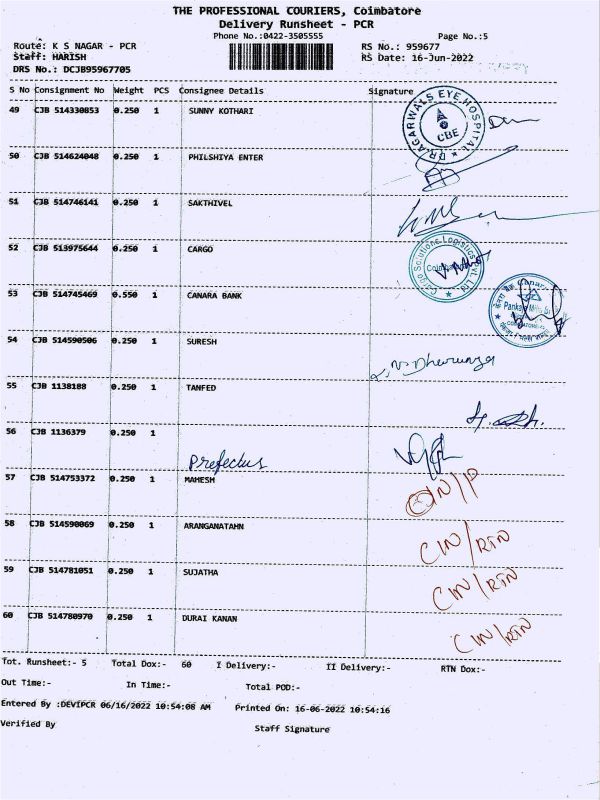 THE PROFESSIONAL COURIERS, Coimbatore
Delivery Runsheet - PCR
Phone No.:0422-3505555 Page No.:5
Route: K S NAGAR - PCR RS No.: 959677
Staff: HARISH RS Date: 16-Jun-2022
DRS No.: DCJB95967705
S No Consignment No Weight PCS Consignee Details Signature
49 CJB 514330853 0.250 1 SUNNY KOTHARI
DR.AGARWALS EYE HOSPITAL
CBE
50 CJB 514624048 0.250 1 PHILSHIYA ENTER
51 CJB 514746141 0.250 1 SAKTHIVEL
52 CJB 513975644 0.250 1 CARGO
53 CJB 514745469 0.550 1 CANARA BANK
54 CJB 514590506 0.250 1 SURESH
55 CJB 1138188 0.250 1 TANFED
56 CJB 1136379 0.250 1
Prefectus
57 CJB 514753372 0.250 1 MAHESH
58 CJB 514590069 0.250 1 ARANGANATAHN
CIN/RTN
59 CJB 514781051 0.250 1 SUJATHA
CIN/RTN
60 CJB 514780970 0.250 1 DURAI KANAN
CIN/RTN
Tot. Runsheet:- 5 Total Dox:- 60 I Delivery:- II Delivery:- RTN Dox:-
Out Time:- In Time:- Total POD:-
Entered By :DEVIPCR 06/16/2022 10:54:08 AM Printed On: 16-06-2022 10:54:16
Verified By Staff Signature